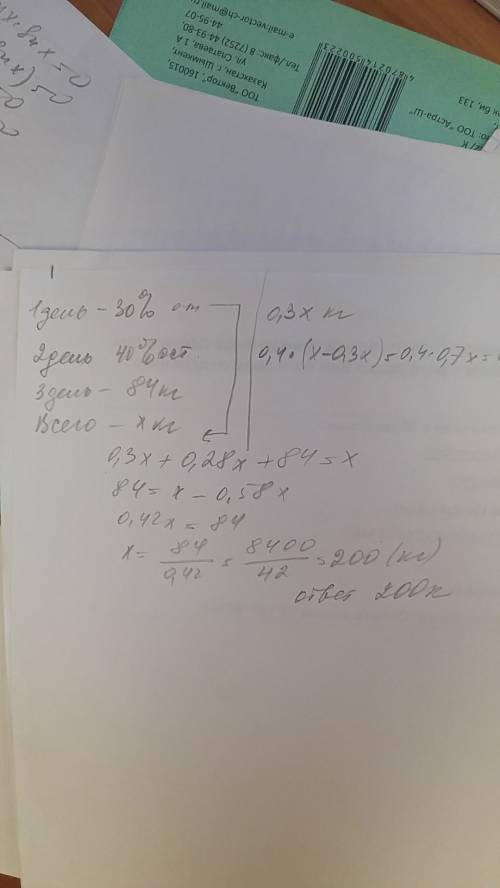 ТОО "Вектор", 160015,
Казахстан, г. Шымкент,
ул. Спатаева, 1 А
Тел./факс: 8 (7252) 44-93-80,
44-95-07
e-mail:vector-ch@mail.ru
4 870214 500223
ТОО "Астра-Ш"
би, 133
1
1 день – 30% от
2 день 40% ост.
3 день – 84 кг
Всего – x кг
0,3x кг
0,4·(x–0,3x)=0,4·0,7x=
0,3x+0,28x+84=x
84=x–0,58x
0,42x=84
x=84/0,42=8400/42=200 (кг)
ответ 200к